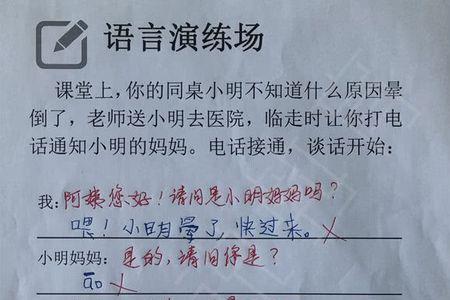 语言演练场
课堂上,你的同桌小明不知道什么原因晕
倒了,老师送小明去医院,临走时让你打电
话通知小明的妈妈。电话接通,谈话开始:
我:阿姨您好!请问是小明妈妈吗?
喂!小明晕了,快过来。
小明妈妈:是的,请问你是?